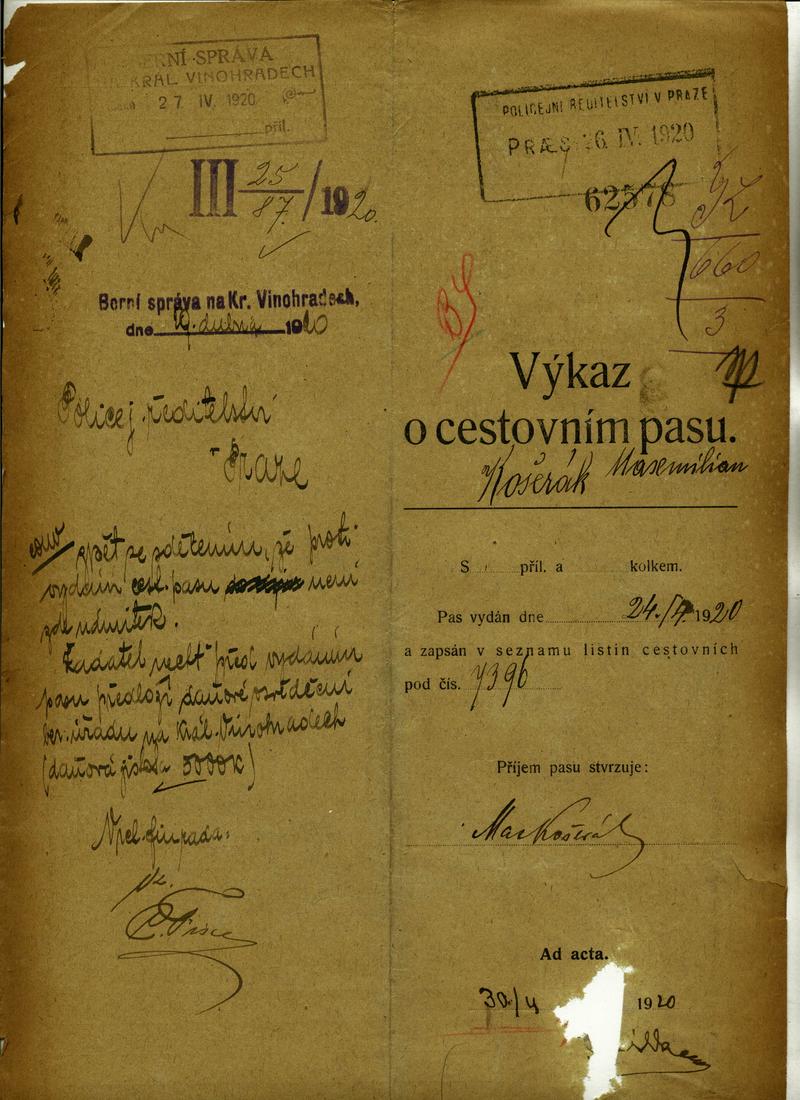 BERNÍ SPRÁVA
KRÁL VINOHRADECH
27 IV. 1920
příl.
III 25/87 /1920.
Berní správa na Kr. Vinohradech,
dne 19. dubna 1920
Policej. ředitelství
Praze
zpět se sdělením, že proti
vydání cest. pasu není
zde námitek.
Žadatel nechť před vydáním
pasu předloží daňové osvědčení
ber. úřadu na Král. Vinohradech
(daňová jistota 5000 K)
POLICEJNÍ ŘEDITELSTVÍ V PRAZE
PRÆS 26. IV. 1920
62578
660
3
Výkaz
o cestovním pasu.
Košerák Maxemilian
S příl. a kolkem.
Pas vydán dne 24./4 1920
a zapsán v seznamu listin cestovních
pod čís. 7396
Příjem pasu stvrzuje:
Max Košerák
Ad acta.
30./4 1920